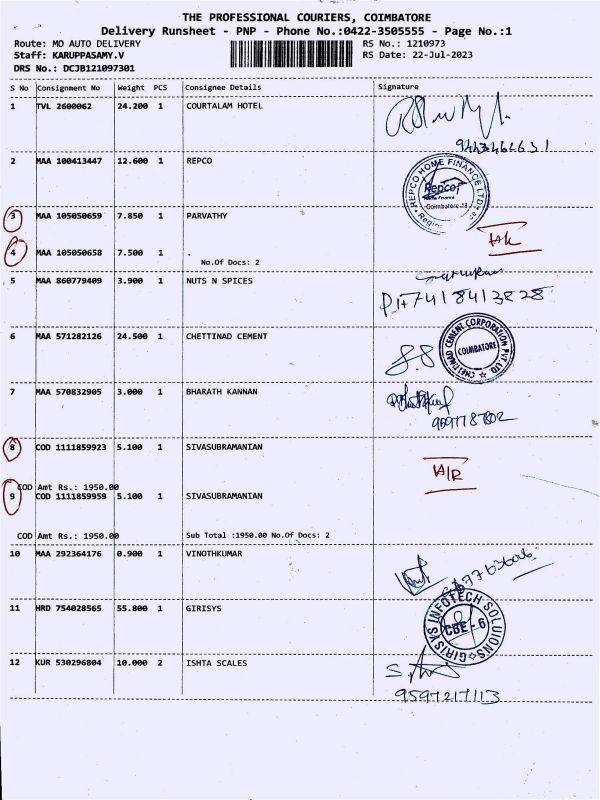 THE PROFESSIONAL COURIERS, COIMBATORE
Delivery Runsheet - PNP - Phone No.:0422-3505555 - Page No.:1
Route: MO AUTO DELIVERY RS No.: 1210973
Staff: KARUPPASAMY.V RS Date: 22-Jul-2023
DRS No.: DCJB121097301
S No Consignment No Weight PCS Consignee Details Signature
1 TVL 2600062 24.200 1 COURTALAM HOTEL
2 MAA 100413447 12.600 1 REPCO
REPCO HOME FINANCE LTD
Repco
Home Finance
Coimbatore-18
3 MAA 105050659 7.850 1 PARVATHY
4 MAA 105050658 7.500 1 .
No.Of Docs: 2
5 MAA 860779409 3.900 1 NUTS N SPICES
PH 7418413828
6 MAA 571282126 24.500 1 CHETTINAD CEMENT
CHETTINAD CEMENT CORPORATION PVT. LTD.
COIMBATORE
7 MAA 570832905 3.000 1 BHARATH KANNAN
8 COD 1111859923 5.100 1 SIVASUBRAMANIAN
COD Amt Rs.: 1950.00
9 COD 1111859959 5.100 1 SIVASUBRAMANIAN
COD Amt Rs.: 1950.00 Sub Total :1950.00 No.Of Docs: 2
10 MAA 292364176 0.900 1 VINOTHKUMAR
11 HRD 754028565 55.800 1 GIRISYS
GIRISYS INFOTECH SOLUIONS
CBE - 6
12 KUR 530296804 10.000 2 ISHTA SCALES
9597217113